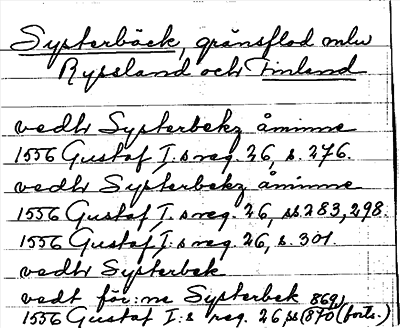 Systerbäck, gränsflod mlw
Ryssland och Finland
vedh Systerbekz åminne
1556 Gustaf I:s reg. 26, s. 276.
vedh Systerbekz åminne
1556 Gustaf I:s reg. 26, ss 283, 298.
1556 Gustaf I:s reg. 26, s. 301.
vedh Systerbek
vedt för:ne Systerbek 869,
1556 Gustaf I:s reg. 26, ss (870 (forts.)